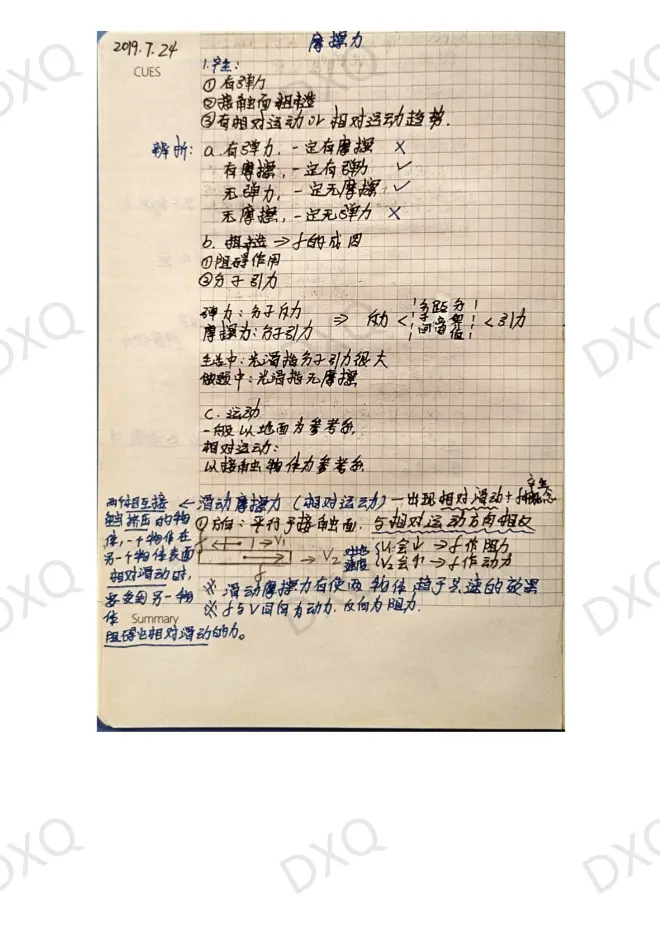 2019.7.24
摩擦力
CUES
1.产生:
①有弹力
②接触面粗糙
③有相对运动or相对运动趋势.
辨析: a.有弹力,一定有摩擦 ×
有摩擦,一定有弹力 ✓
无弹力,一定无摩擦 ✓
无摩擦,一定无弹力 ×
b. 粗糙 → f的成因
①阻碍作用
②分子引力
弹力:分子斥力
摩擦力:分子引力 ⇒ 斥力 < 分子间 < 引力
生活中:光滑指分子引力很大
做题中:光滑指无摩擦
C. 运动
一般以地面为参考系,
相对运动:
以接触物体为参考系.
两个相互接触挤压的物体,一个物体在另一个物体表面相对滑动时,要受到另一物体阻碍它相对滑动的力。
← 滑动摩擦力(相对运动)—出现相对滑动+f产生概念
①方向:平行于接触面,与相对运动方向相反
f ← → V₁
→ V₂
f
对地速度 V₁会↓ → f作阻力
V₂会↑ → f作动力
※ 滑动摩擦力有使两物体趋于共速的效果
※ f与V同向为动力,反向为阻力.
Summary
DXQ
DXQ
DXQ
DXQ
DXQ
DXQ
DXQ
DXQ
DXQ
DXQ
DXQ
DXQ